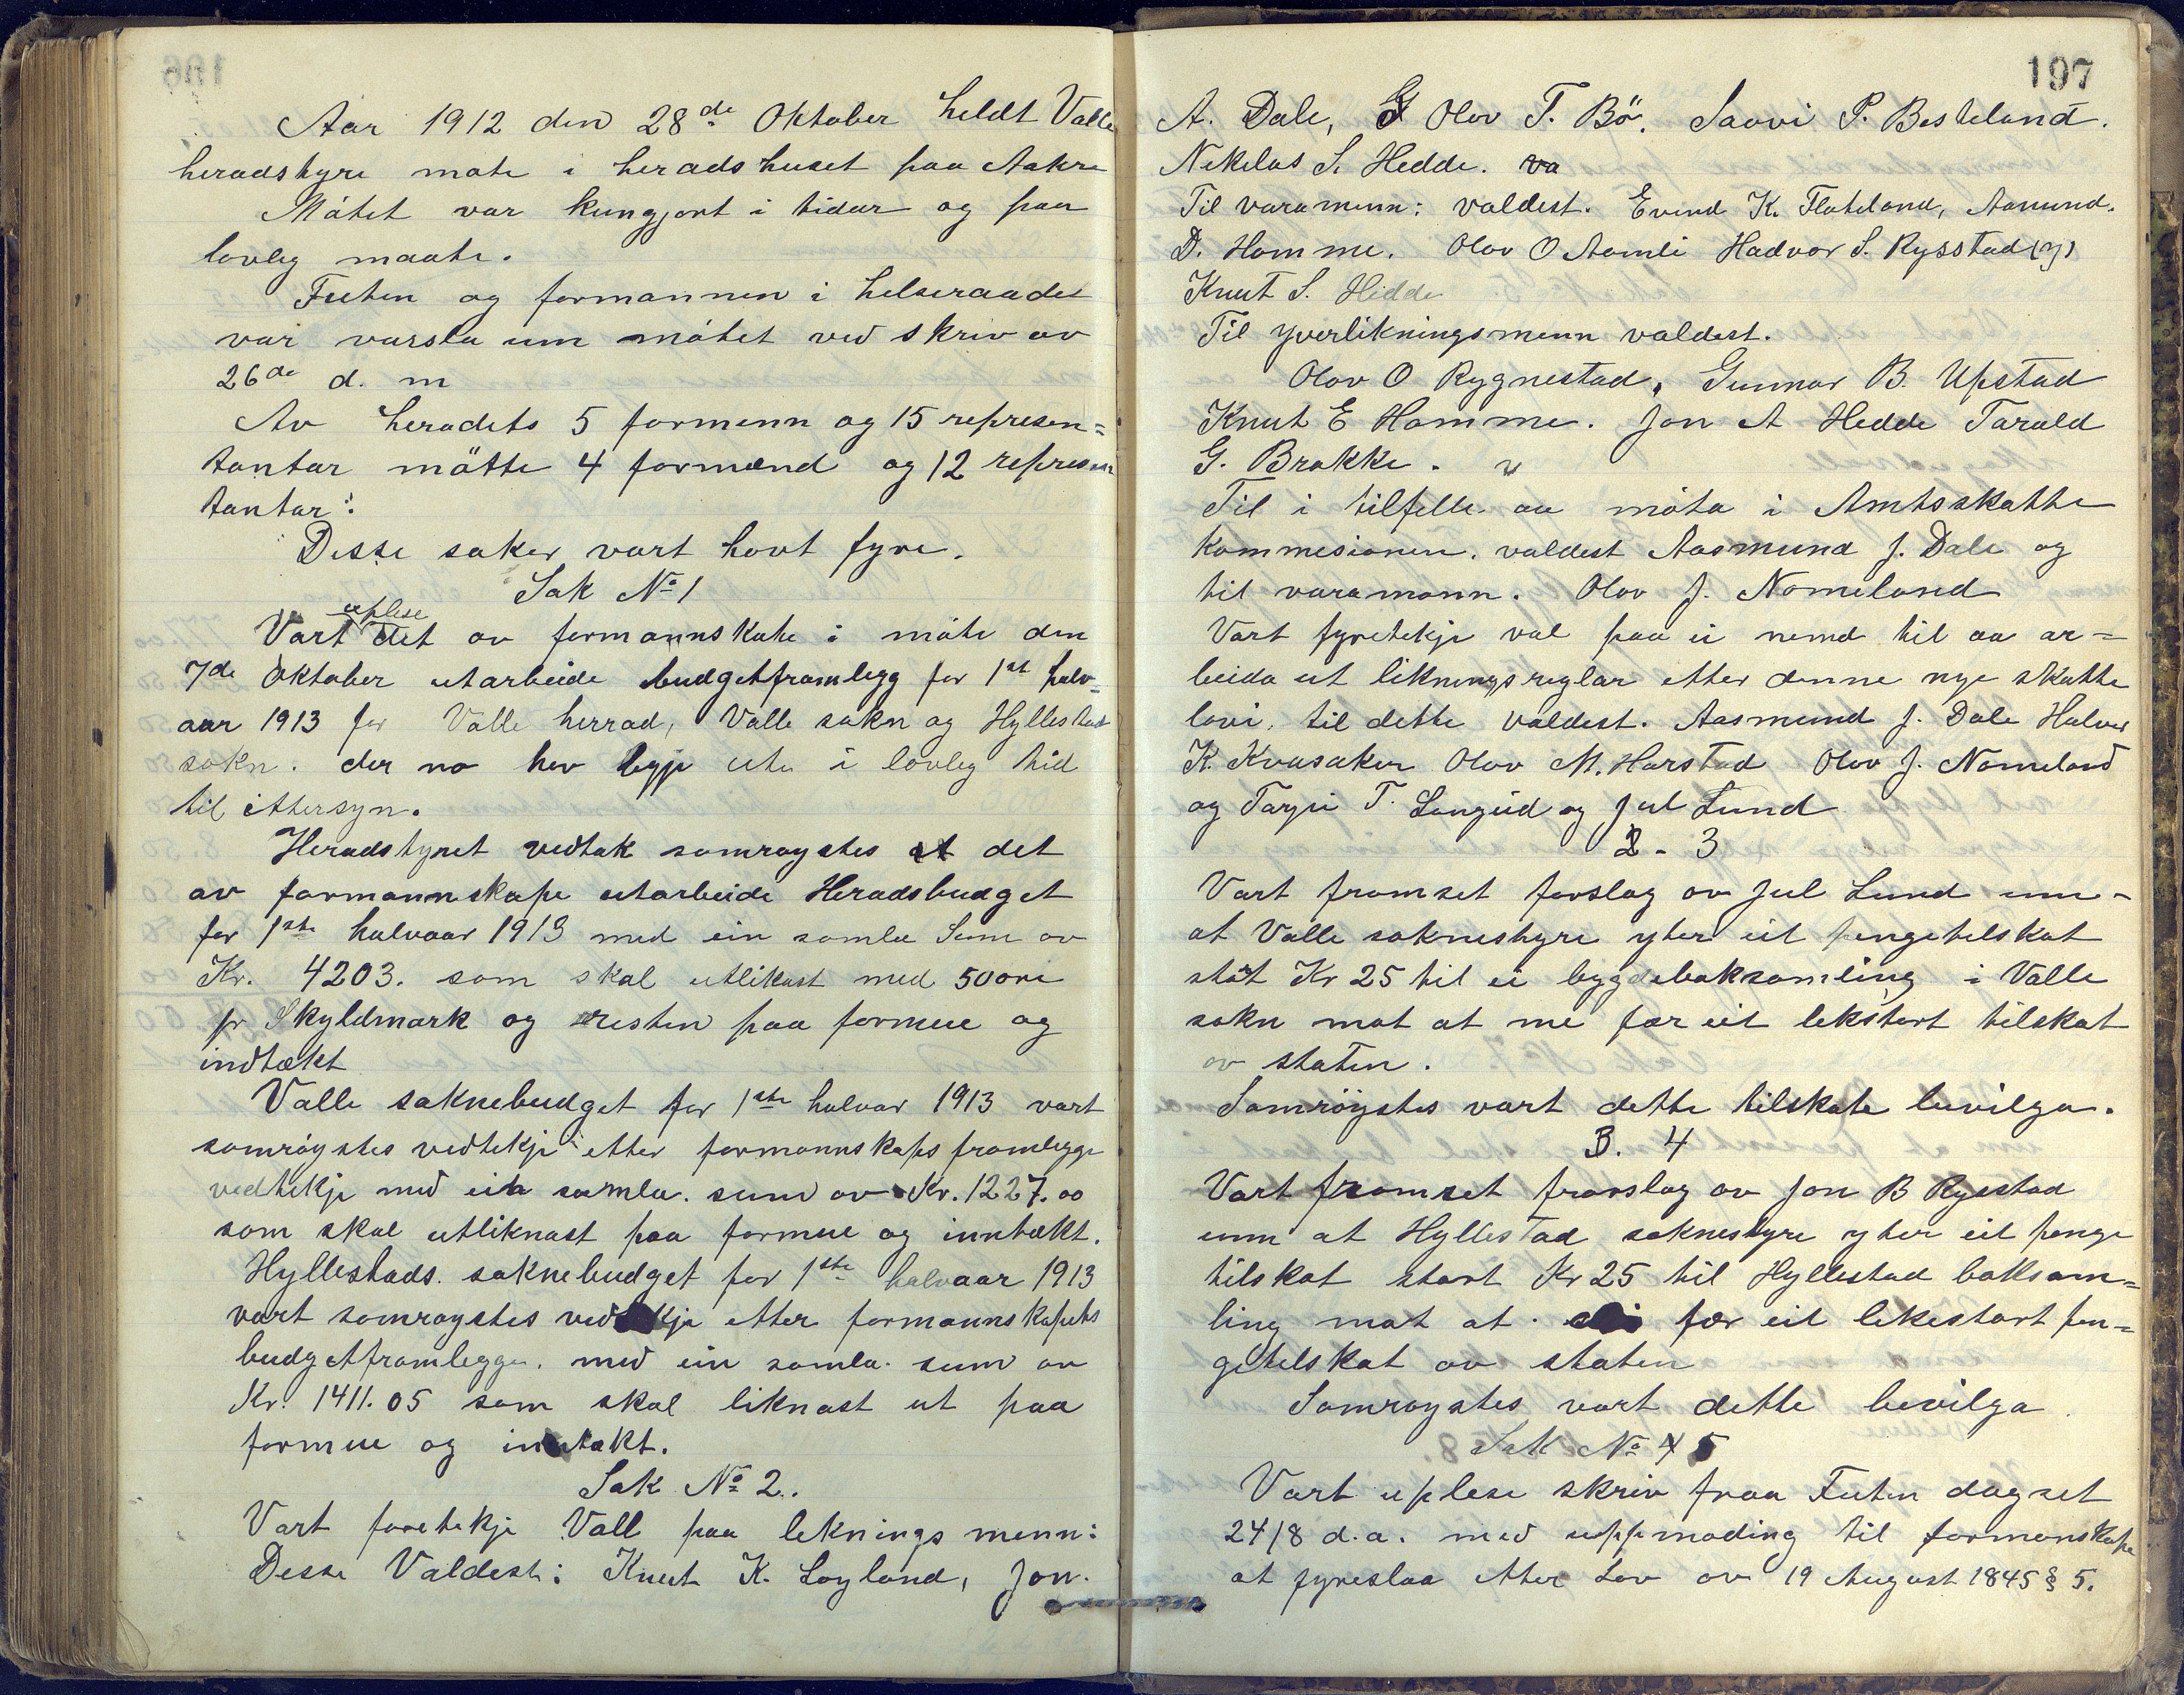 Aar 1912 den 28de Oktober heldt Valle
heradstyre møte i heradshuset paa Aakre
Møtet var kungjort i tidar og paa
lovleg maate.
Futen og formannen i helseraadet
var varsla um møtet ved skriv av
26de d. m
Av heradets 5 formenn og 15 represen=
tantar møtte 4 formænd og 12 represen
tantar:
Desse saker vart havt fyre.
Sak No 1
uplese
Vart det av formannskape i møte den
7de Oktober utarbeide budgetframlegg for 1st halv=
aar 1913 for Valle herrad, Valle sokn og Hyllestad
sokn. der no hev legje ute i lovleg tid
til ettersyn.
Heradstyret vedtok samrøystes at det
av formannskape utarbeide Heradsbudget
for 1ste halvaar 1913 med ein samla Sum av
Kr. 4203. som skal utlikast med 50 øre
pr Skyldmark og resten paa formue og
indtækt
Valle soknebudget for 1ste halvar 1913 vart
samrøystes vedtekje etter formannskaps framlegge
vedtekje med ein samla. sum av Kr. 1227.00
som skal utliknast paa formue og inntækt.
Hyllestads. soknebudget for 1ste halvaar 1913
vart samrøystes vedtekje etter formannskapets
budgetframlegge. med ein samla. sum av
Kr. 1411.05 som skal liknast ut paa
formue og inntækt.
Sak No 2.
Vart foretekje Vall paa leknings menn:
Desse Valdest: Knut K. Løyland, Jon.
197
A. Dale, G Olov T. Bø. Saavi P. Besteland.
Nekelos S. Hedde. va
Til varamenn: valdest. Evind K. Flateland, Aanund.
D. Homme. Olov O Aamli Hadvor S. Rysstad (y)
Knut S. Hedde
Til yverlikningsmenn valdest.
Olov O Rygnestad, Gunnar B. Upstad
Knut E Homme. Jon A Hedde Tarald
G. Brokke. v
Til i tilfelle aa møta i Amtsskatte
kommesionen. valdest Aasmund J. Dale og
til varamann. Olov J. Nomeland
Vart fyretekje val paa ei nemd til aa ar=
beida ut likningsreglar etter denne nye skatte
lovi, til dette valdest. Aasmund J. Dale Halvor
K. Kvasaker Olov M. Harstad Olov J. Nomeland
og Tarjei T. Langeid og Jul Lund
2 - 3
Vart framset forslag av Jul Lund um-
at Valle soknestyre yter eit pengetilskot
stort Kr 25 til ei bygdeboksamling i Valle
sokn mot at me fær eit lekstort tilskot
av staten.
Samrøystes vart dette tilskote bevilga.
3. 4
Vart framset fraaslag av Jon B Rysstad
um at Hyllestad soknestyre yter eit penge
tilskot stort Kr 25 til Hyllestad boksam=
ling mot at fær eit likestort pen=
getilskot av staten
Samrøystes vart dette bevilga
Sak No 4 5
Vart uplese skriv fraa Futen dagset
24/8 d.a. med uppmoding til formonskape
at fyreslaa etter Lov av 19 August 1845 § 5.